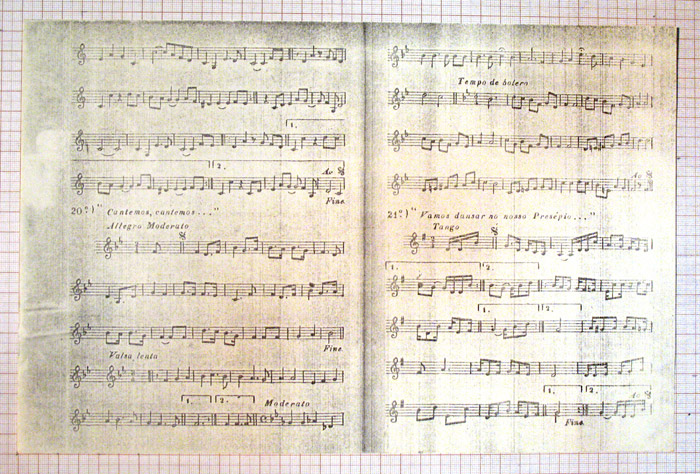 1.
2.
Ao
Fine.
20º) "Cantemos, cantemos..."
Allegro Moderato
Fine.
Valsa lenta
1.
2.
Moderato
Tempo de bolero
Ao
21º) "Vamos dansar no nosso Presépio..."
Tango
1.
2.
1.
2.
1.
2.
Ao
Fine.